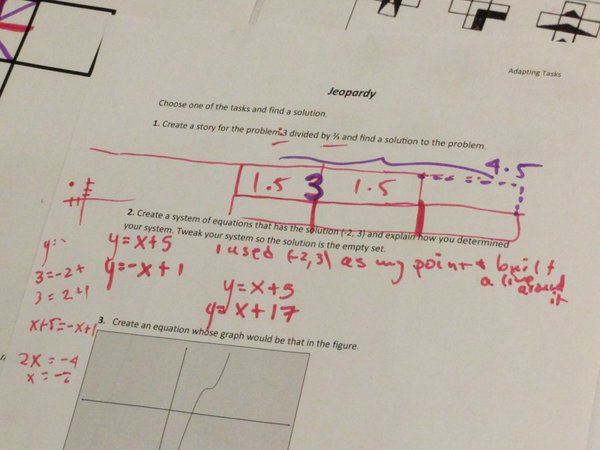 Adapting Tasks
Jeopardy
Choose one of the tasks and find a solution.
1. Create a story for the problem 3 divided by ⅔ and find a solution to the problem.
4.5
1.5 3 1.5
2. Create a system of equations that has the solution (-2, 3) and explain how you determined
your system. Tweak your system so the solution is the empty set.
y=x+5
y=-x+1
I used (-2,3) as my point & built
a line around
it
y=x+5
y=x+17
3=-2+
3=2+1
x+5=-x+1
2x=-4
x=-2
3. Create an equation whose graph would be that in the figure.